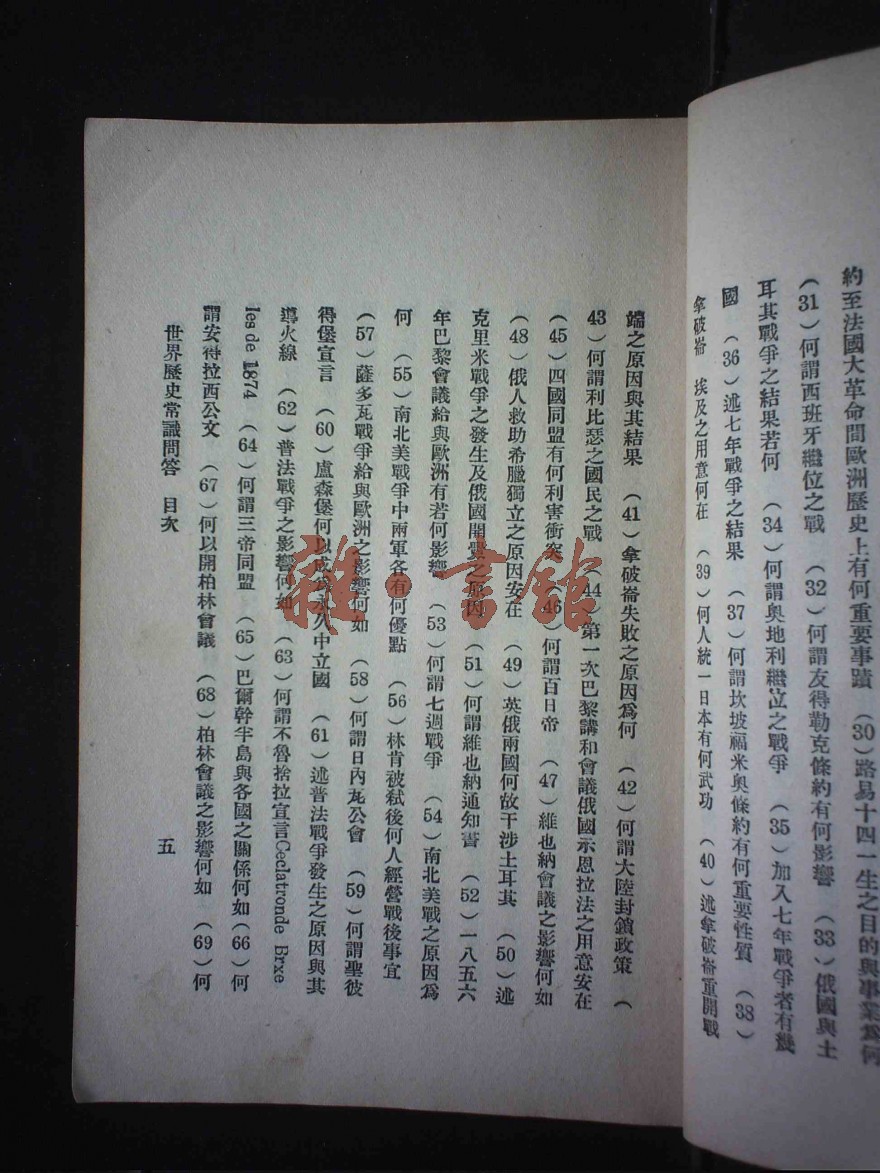 約至法國大革命間歐洲歷史上有何重要事蹟 （30）路易十四一生之目的與事業為何
（31）何謂西班牙繼位之戰 （32）何謂友得勒克條約有何影響 （33）俄國與土
耳其戰爭之結果若何 （34）何謂奧地利繼位之戰爭 （35）加入七年戰爭者有幾
國 （36）述七年戰爭之結果 （37）何謂坎坡福米奧條約有何重要性質 （38）
拿破崙 埃及之用意何在 （39）何人統一日本有何武功 （40）述拿破崙重開戰
端之原因與其結果 （41）拿破崙失敗之原因爲何 （42）何謂大陸封鎖政策 （
43）何謂利比瑟之國民之戰 （44）第一次巴黎講和會議俄國示恩拉法之用意安在
（45）四國同盟有何利害衝突 （46）何謂百日帝 （47）維也納會議之影響何如
（48）俄人救助希臘獨立之原因安在 （49）英俄兩國何故干涉土耳其 （50）述
克里米戰爭之發生及俄國開釁之原因 （51）何謂維也納通知書 （52）一八五六
年巴黎會議給與歐洲有若何影響 （53）何謂七週戰爭 （54）南北美戰之原因爲
何 （55）南北美戰爭中兩軍各有何優點 （56）林肯被弒後何人經營戰後事宜
（57）薩多瓦戰爭給與歐洲之影響何如 （58）何謂日內瓦公會 （59）何謂聖彼
得堡宣言 （60）盧森堡何以成爲永久中立國 （61）述普法戰爭發生之原因與其
導火線 （62）普法戰爭之影響何如 （63）何謂不魯捨拉宣言Ceclatronde Brxe
les de 1874 （64）何謂三帝同盟 （65）巴爾幹半島與各國之關係何如（66）何
謂安得拉西公文 （67）何以開柏林會議 （68）柏林會議之影響何如 （69）何
世界歷史常識問答 目次 五
雜·書館